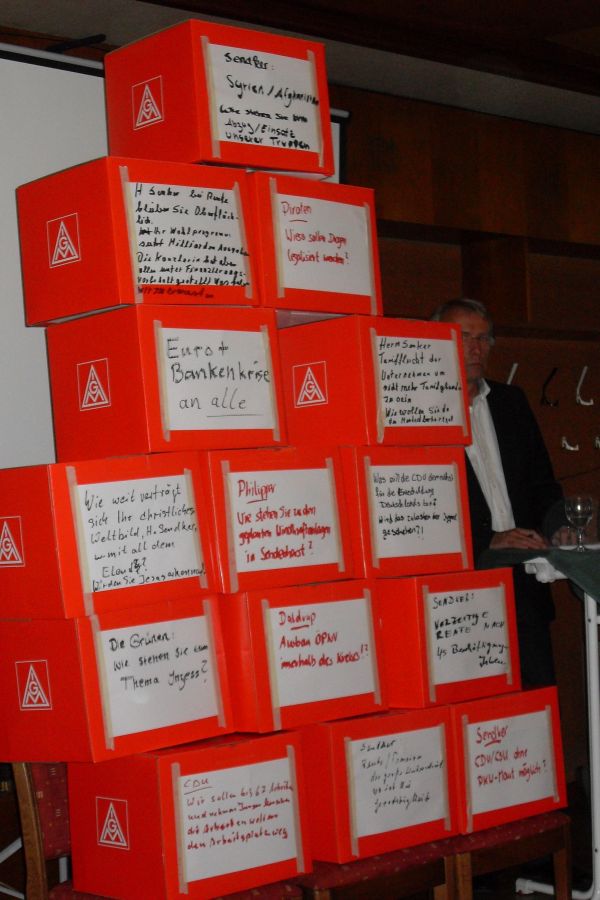 Sendker:
Syrien/Afghanistan
Wie stehen Sie zum
Abzug/Einsatz
unserer Truppen
H Senker bei Rente
bleiben Sie Oberfläch-
lich.
Ihr Wahlprogramm
sieht Milliarden Ausgaben
Die Kanzlerin hat aber
alles unter Finanzierungs-
vorbehalt gestellt
Piraten
Wieso sollen Drogen
legalisiert werden?
Euro +
Bankenkrise
an alle
Herrn Senker
Tarifflucht der
Unternehmen um
nicht mehr
zu sein
Wie wollen Sie da
Wie weit verträgt
sich Ihr christliches
Weltbild, H. Sendker,
mit all dem
Elend?
Würden Sie Jesus
Philipp
Wie stehen Sie zu den
geplanten Windkraftanlagen
in Sendenhorst?
Was will die CDU
für die Entschuldung
Deutschlands tun?
Wird das zulasten der
geschehen?!
Die Grünen:
Wie stehen Sie zum
Thema Inzess?
Daldrup
Ausbau ÖPNV
innerhalb des Kreises!?
SENDKER:
VORZEITIGE
RENTE NACH
45 Beschäftigungs-
Jahren
CDU
Wir sollen bis 67 Arbeiten
und nehmen Jungen Menschen
die Arbeit
den Arbeitsplatz weg
Sendker
Rente / Pension
der große Unterschied
wo ist die
Gerechtigkeit
Sendker
CDU/CSU ohne
PKW-Maut möglich?